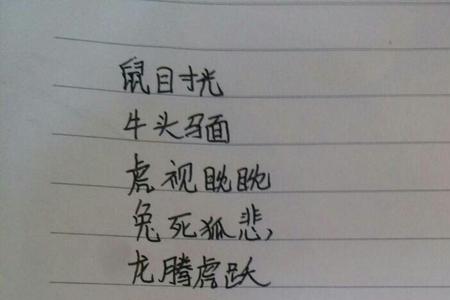 鼠目寸光
牛头马面
虎视眈眈
兔死狐悲,
龙腾虎跃